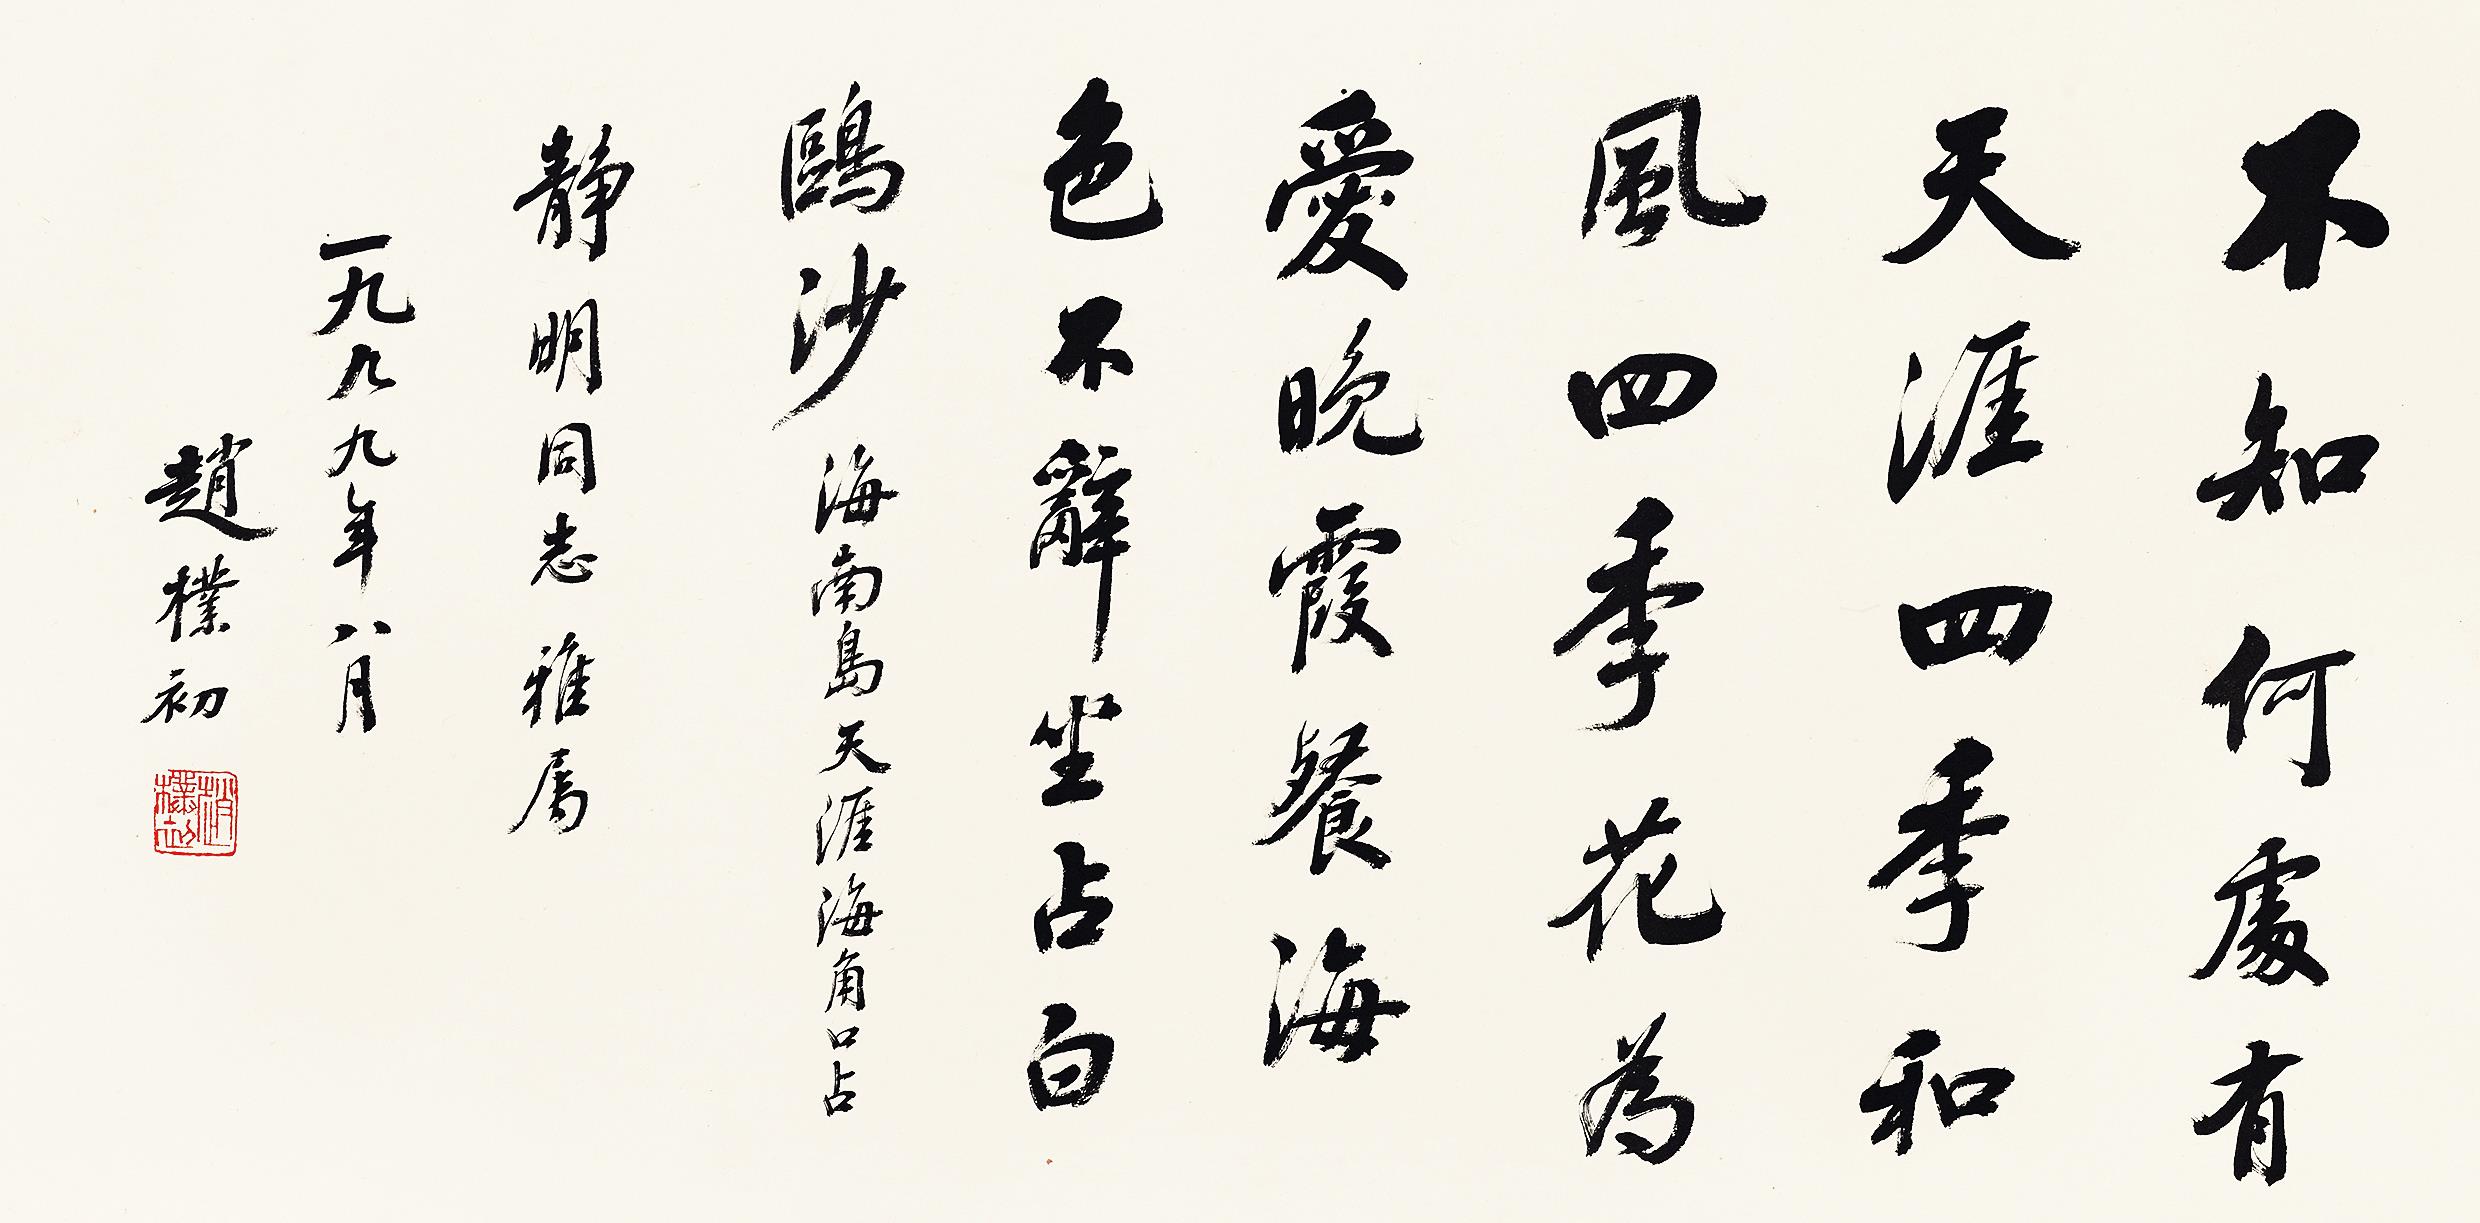 不知何處有
天涯四季和
風四季花為
愛晚霞餐海
色不辭坐占白
鷗沙 海南島天涯海角口占
靜明同志雅属
一九九九年八月
趙樸初
趙樸初